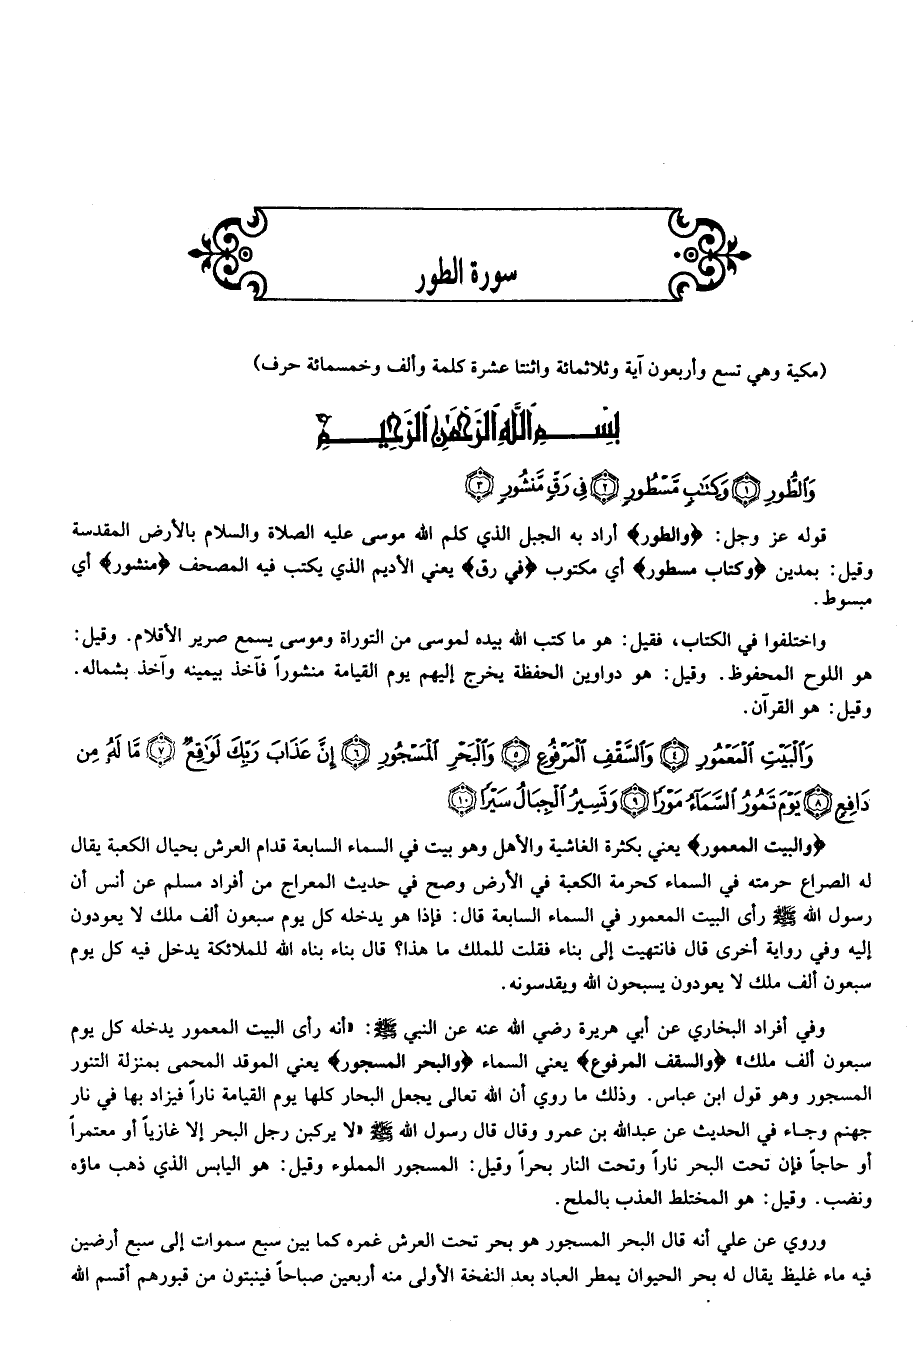 سورة الطور
(مكية وهي تسع وأربعون آية وثلاثمائة واثنتا عشرة كلمة وألف وخمسمائة حرف)
بِسْمِ اللَّهِ الرَّحْمَٰنِ الرَّحِيمِ
وَالطُّورِ ﴿١﴾ وَكِتَابٍ مَّسْطُورٍ ﴿٢﴾ فِي رَقٍّ مَّنشُورٍ ﴿٣﴾
قوله عز وجل: ﴿والطور﴾ أراد به الجبل الذي كلم الله موسى عليه الصلاة والسلام بالأرض المقدسة
وقيل: بمدين ﴿وكتاب مسطور﴾ أي مكتوب ﴿في رق﴾ يعني الأديم الذي يكتب فيه المصحف ﴿منشور﴾ أي
مبسوط.
واختلفوا في الكتاب، فقيل: هو ما كتب الله بيده لموسى من التوراة وموسى يسمع صرير الأقلام. وقيل:
هو اللوح المحفوظ. وقيل: هو دواوين الحفظة يخرج إليهم يوم القيامة منشوراً فآخذ بيمينه وآخذ بشماله.
وقيل: هو القرآن.
وَالْبَيْتِ الْمَعْمُورِ ﴿٤﴾ وَالسَّقْفِ الْمَرْفُوعِ ﴿٥﴾ وَالْبَحْرِ الْمَسْجُورِ ﴿٦﴾ إِنَّ عَذَابَ رَبِّكَ لَوَاقِعٌ ﴿٧﴾ مَّا لَهُ مِن
دَافِعٍ ﴿٨﴾ يَوْمَ تَمُورُ السَّمَاءُ مَوْرًا ﴿٩﴾ وَتَسِيرُ الْجِبَالُ سَيْرًا ﴿١٠﴾
﴿والبيت المعمور﴾ يعني بكثرة الغاشية والأهل وهو بيت في السماء السابعة قدام العرش بحيال الكعبة يقال
له الصراع حرمته في السماء كحرمة الكعبة في الأرض وصح في حديث المعراج من أفراد مسلم عن أنس أن
رسول الله ﷺ رأى البيت المعمور في السماء السابعة قال: فإذا هو يدخله كل يوم سبعون ألف ملك لا يعودون
إليه وفي رواية أخرى قال فانتهيت إلى بناء فقلت للملك ما هذا؟ قال بناء بناه الله للملائكة يدخل فيه كل يوم
سبعون ألف ملك لا يعودون يسبحون الله ويقدسونه.
وفي أفراد البخاري عن أبي هريرة رضي الله عنه عن النبي ﷺ: «أنه رأى البيت المعمور يدخله كل يوم
سبعون ألف ملك» ﴿والسقف المرفوع﴾ يعني السماء ﴿والبحر المسجور﴾ يعني الموقد المحمى بمنزلة التنور
المسجور وهو قول ابن عباس. وذلك ما روي أن الله تعالى يجعل البحار كلها يوم القيامة ناراً فيزاد بها في نار
جهنم وجاء في الحديث عن عبدالله بن عمرو وقال قال رسول الله ﷺ «لا يركبن رجل البحر إلا غازياً أو معتمراً
أو حاجاً فإن تحت البحر ناراً وتحت النار بحراً وقيل: المسجور المملوء وقيل: هو اليابس الذي ذهب ماؤه
ونضب. وقيل: هو المختلط العذب بالملح.
وروي عن علي أنه قال البحر المسجور هو بحر تحت العرش غمره كما بين سبع سموات إلى سبع أرضين
فيه ماء غليظ يقال له بحر الحيوان يمطر العباد بعد النفخة الأولى منه أربعين صباحاً فينبتون من قبورهم أقسم الله